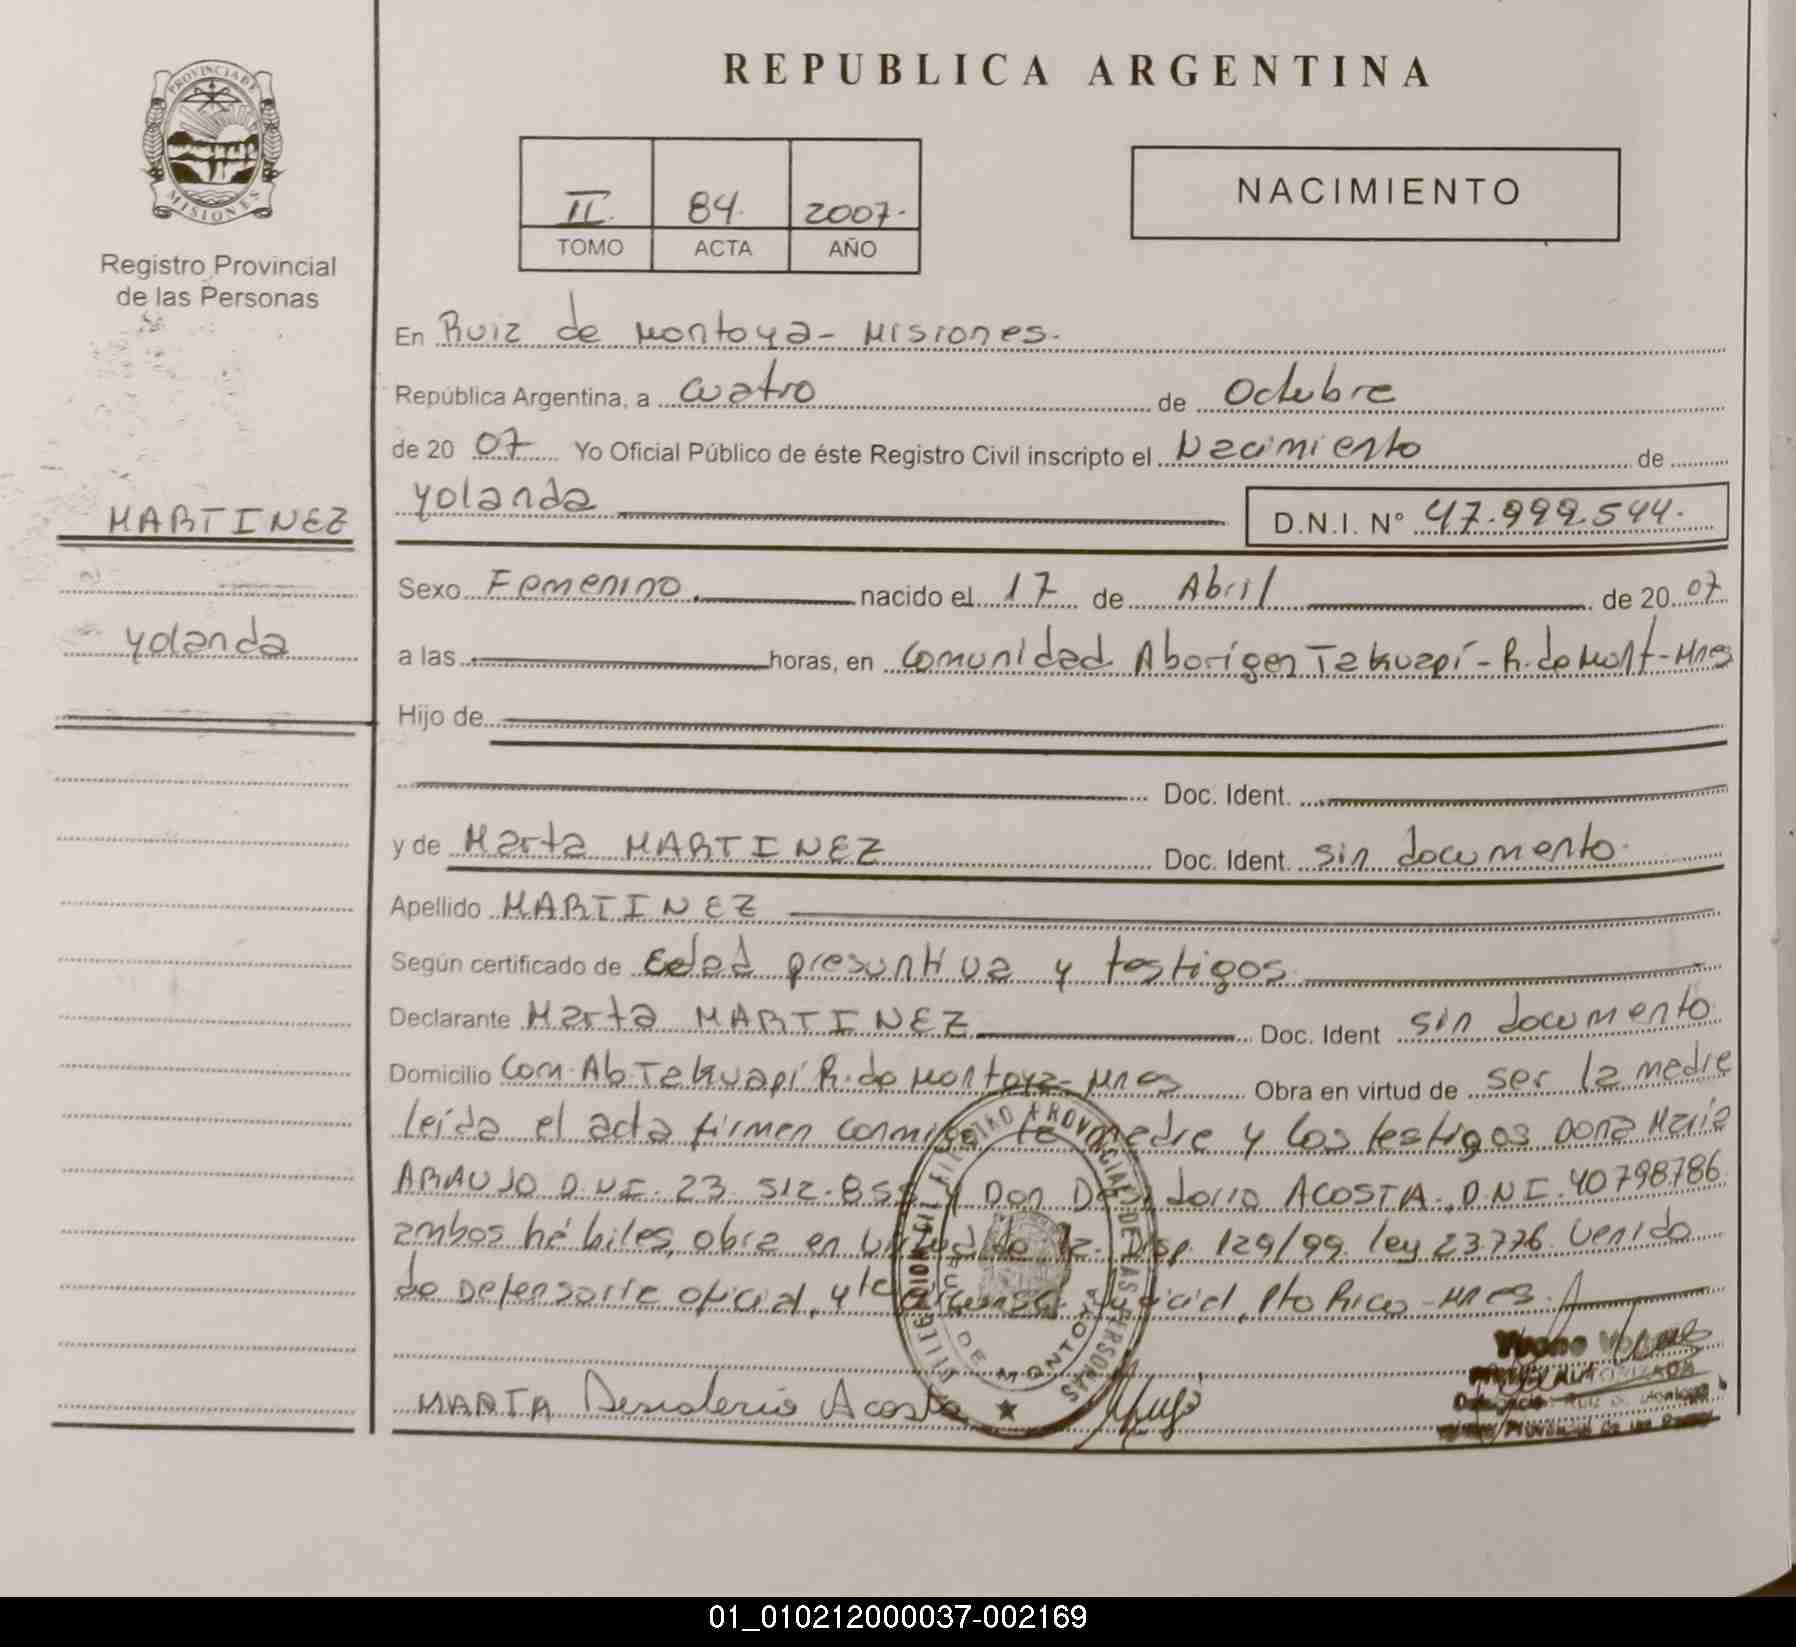 REPUBLICA ARGENTINA
PROVINCIA DE
MISIONES
Registro Provincial
de las Personas
II. 84. 2007.
TOMO ACTA AÑO
NACIMIENTO
En Ruiz de Montoya - Misiones.
República Argentina, a cuatro de Octubre
de 20 07 Yo Oficial Público de éste Registro Civil inscripto el Nacimiento de
MARTINEZ
Yolanda
Yolanda D.N.I. N° 47.999.544.
Sexo Femenino. nacido el 17 de Abril de 20 07
a las horas, en Comunidad Aborigen Takuapí - R. de Mont - Mnes
Hijo de
Doc. Ident.
y de Marta MARTINEZ Doc. Ident. sin documento.
Apellido MARTINEZ
Según certificado de Edad presuntiva y testigos
Declarante Marta MARTINEZ Doc. Ident sin documento
Domicilio Com. Ab Takuapí R. de Montoya - Mnes Obra en virtud de ser la madre
leída el acta firman conmigo la madre y los testigos Doña Maria
ARAUJO D.N.I. 23.512.855 y Don Desiderio ACOSTA, D.N.I. 40798786
ambos hábiles, obra en virtud de la Disp. 129/99 ley 23776 venido
de Defensoria oficial, 4ta circunsc. Judicial, Pto Rico - Mnes.
MARTA Desiderio Acosta
REGISTRO PROVINCIAL DE LAS PERSONAS
DE MONTOYA
01_010212000037-002169